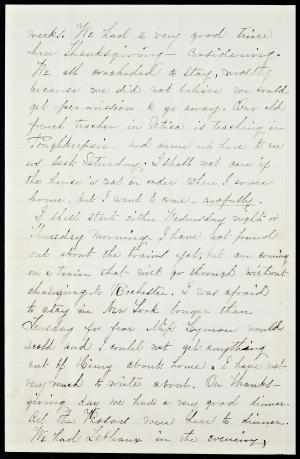 weeks. We had a very good time
here Thanksgiving - Considering -
We all concluded to stay, mostly
because we did not believe we could
get permission to go away. Our old
french teacher in Utica is teaching in
Poughkeepsie and came up here to see
us last Saturday. I shall not care if
the house is not in order when I come
home, but I want to come awfully.
I shall start either Wednesday night or
Thursday morning. I have not found
out about the trains yet, but am coming
on a train that will go through without
changing to Rochester. I was afraid
to stay in New York longer than
Tuesday for fear Miss Lyman would
scold and I could not get anything
out of Henry about home. I have not
very much to write about. On Thanks-
giving day we had a very good dinner.
All the Vassars were here to dinner.
We had Tableaux in the evening,